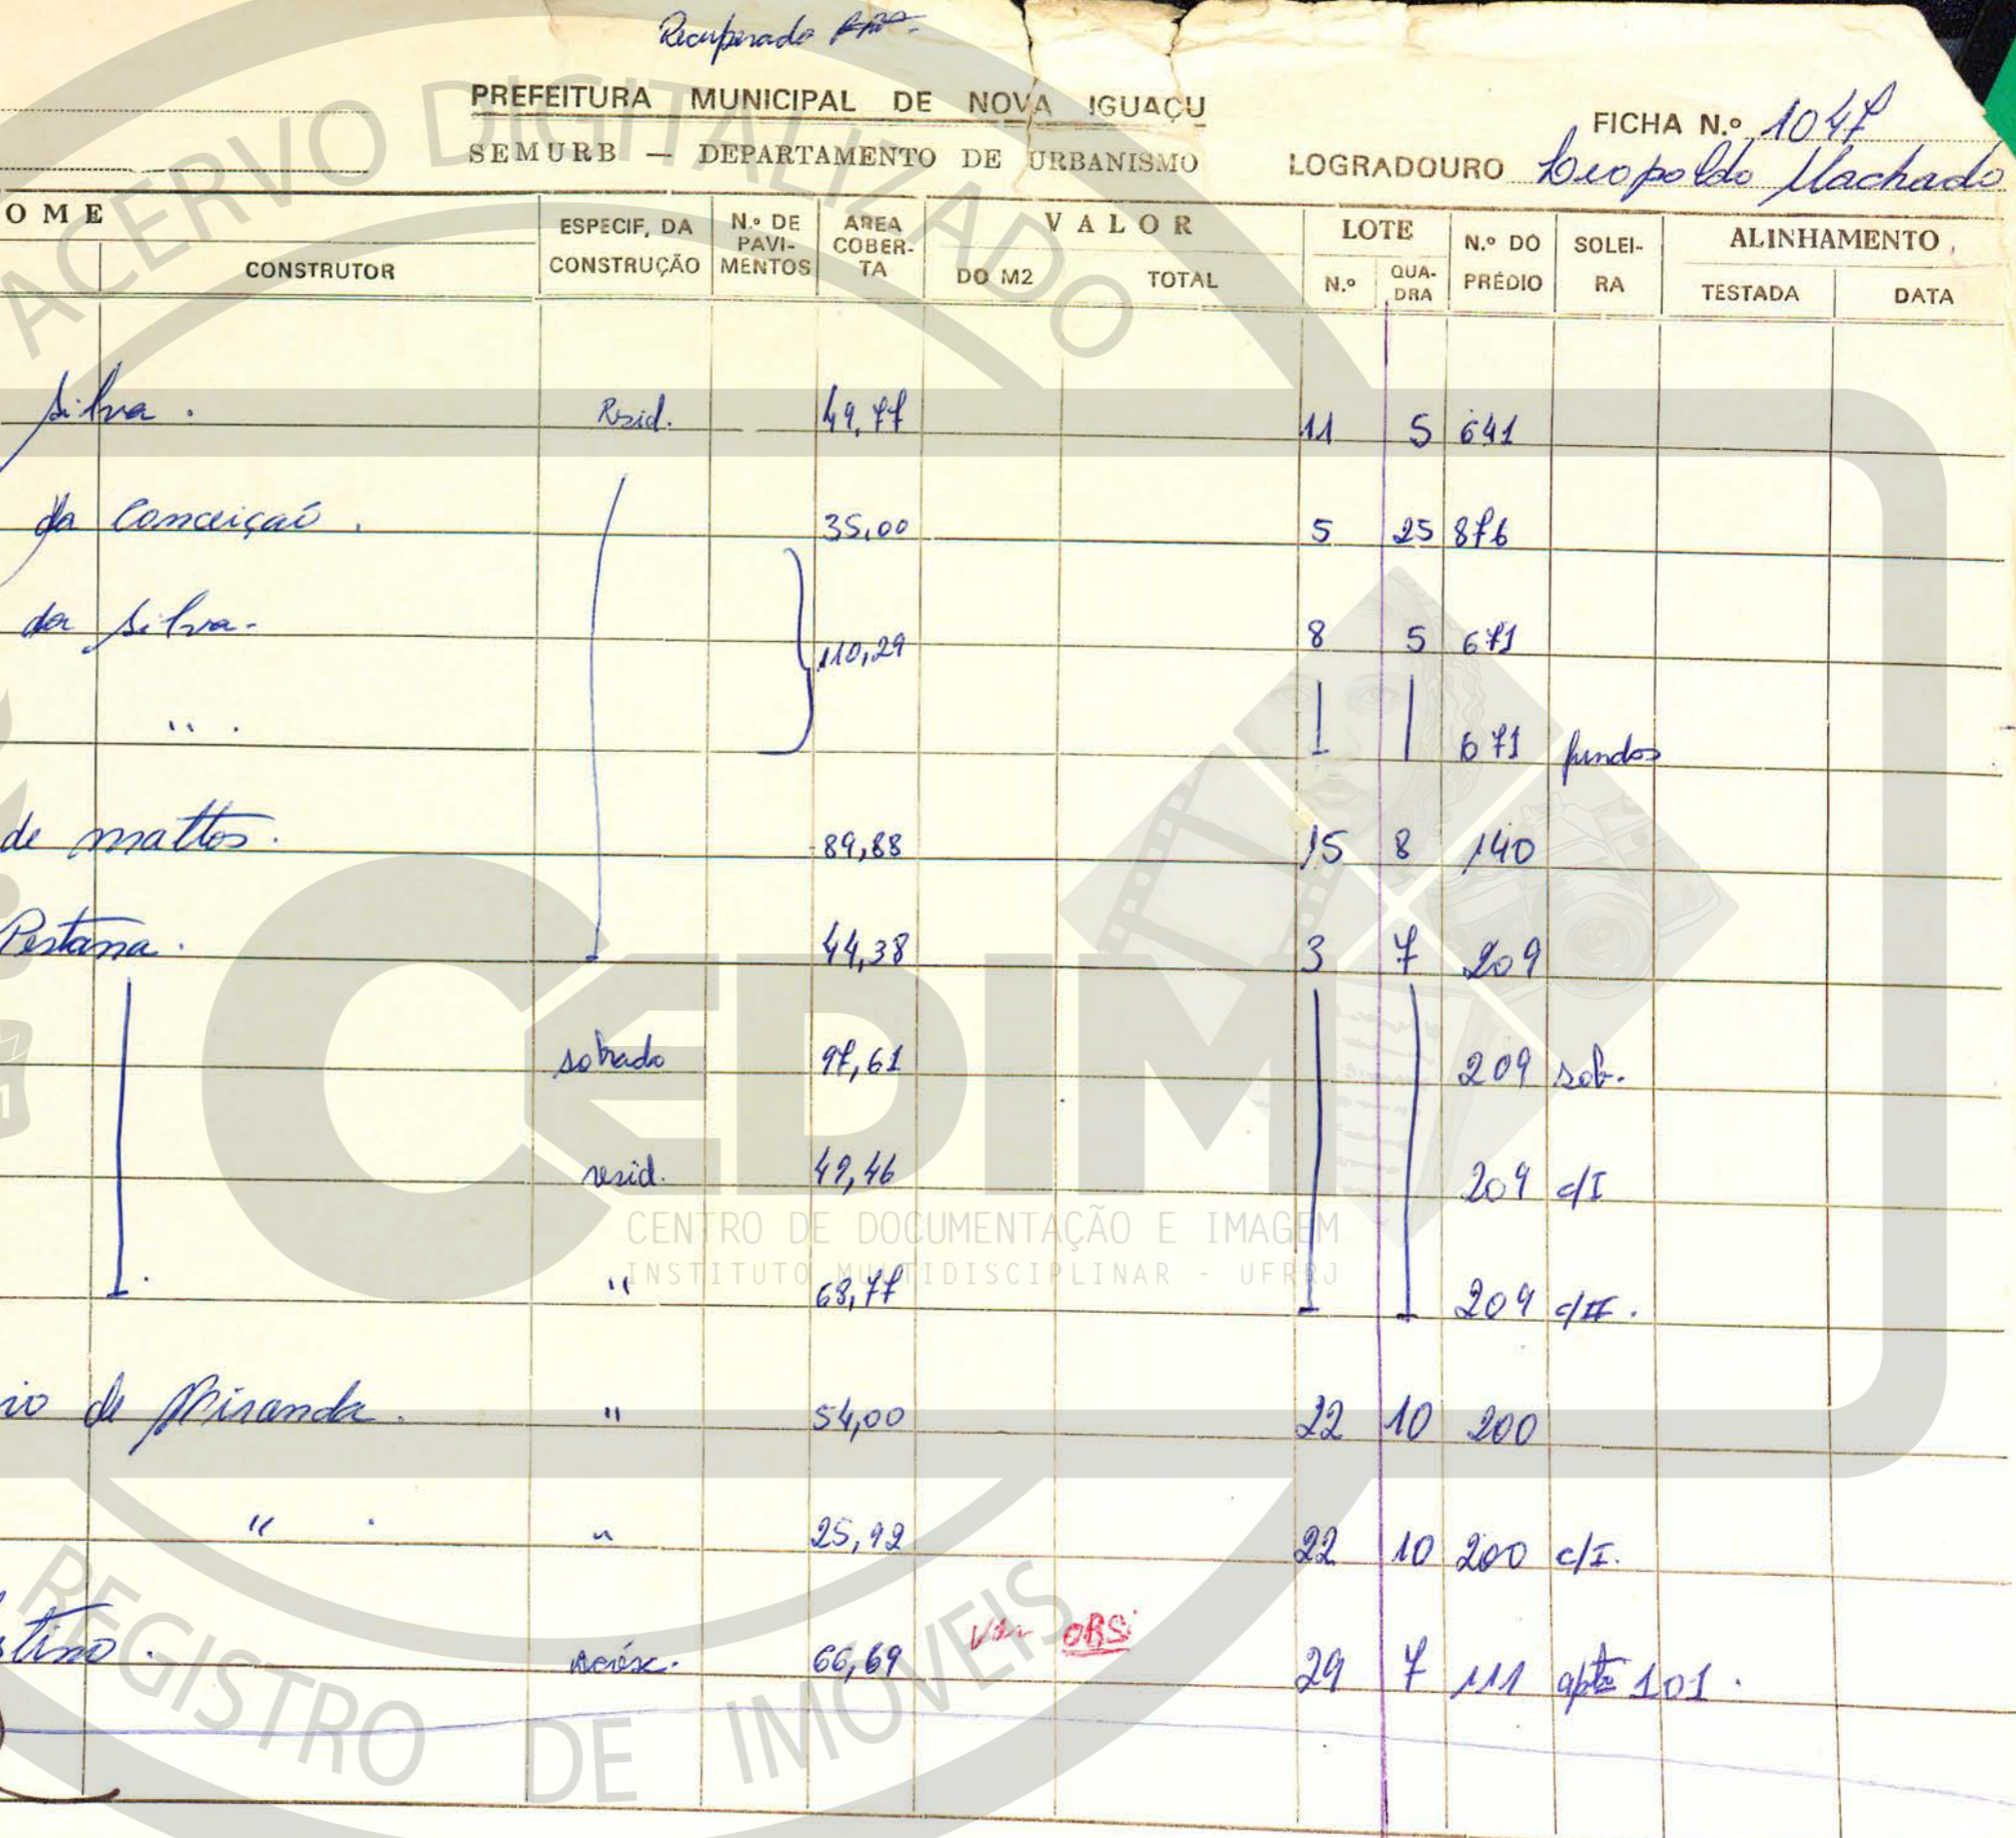 Recuperado
PREFEITURA MUNICIPAL DE NOVA IGUAÇU
SEMURB — DEPARTAMENTO DE URBANISMO
FICHA N.º 1047
LOGRADOURO Leopoldo Machado
OME
CONSTRUTOR
ESPECIF, DA CONSTRUÇÃO
N.º DE PAVI-MENTOS
AREA COBER-TA
VALOR
DO M2 TOTAL
LOTE
N.º QUA-DRA
N.º DO PRÉDIO
SOLEI-RA
ALINHAMENTO
TESTADA DATA
Silva. Resid. 49,77 11 5 641
da Conceição. 35,00 5 25 876
da Silva. 110,29 8 5 671
" . 671 fundos
de mattos. 89,88 15 8 140
Pestana. 44,38 3 7 209
sobrado 97,61 209 sob.
resid. 49,46 209 c/I
" 68,77 209 c/II.
io de Miranda. " 54,00 22 10 200
" . " 25,92 22 10 200 c/I.
tino. acrésc. 66,69 Ver OBS: 29 7 111 apto 101.
ACERVO DIGITALIZADO
CEDIM
CENTRO DE DOCUMENTAÇÃO E IMAGEM
INSTITUTO MULTIDISCIPLINAR - UFRRJ
REGISTRO DE IMOVEIS